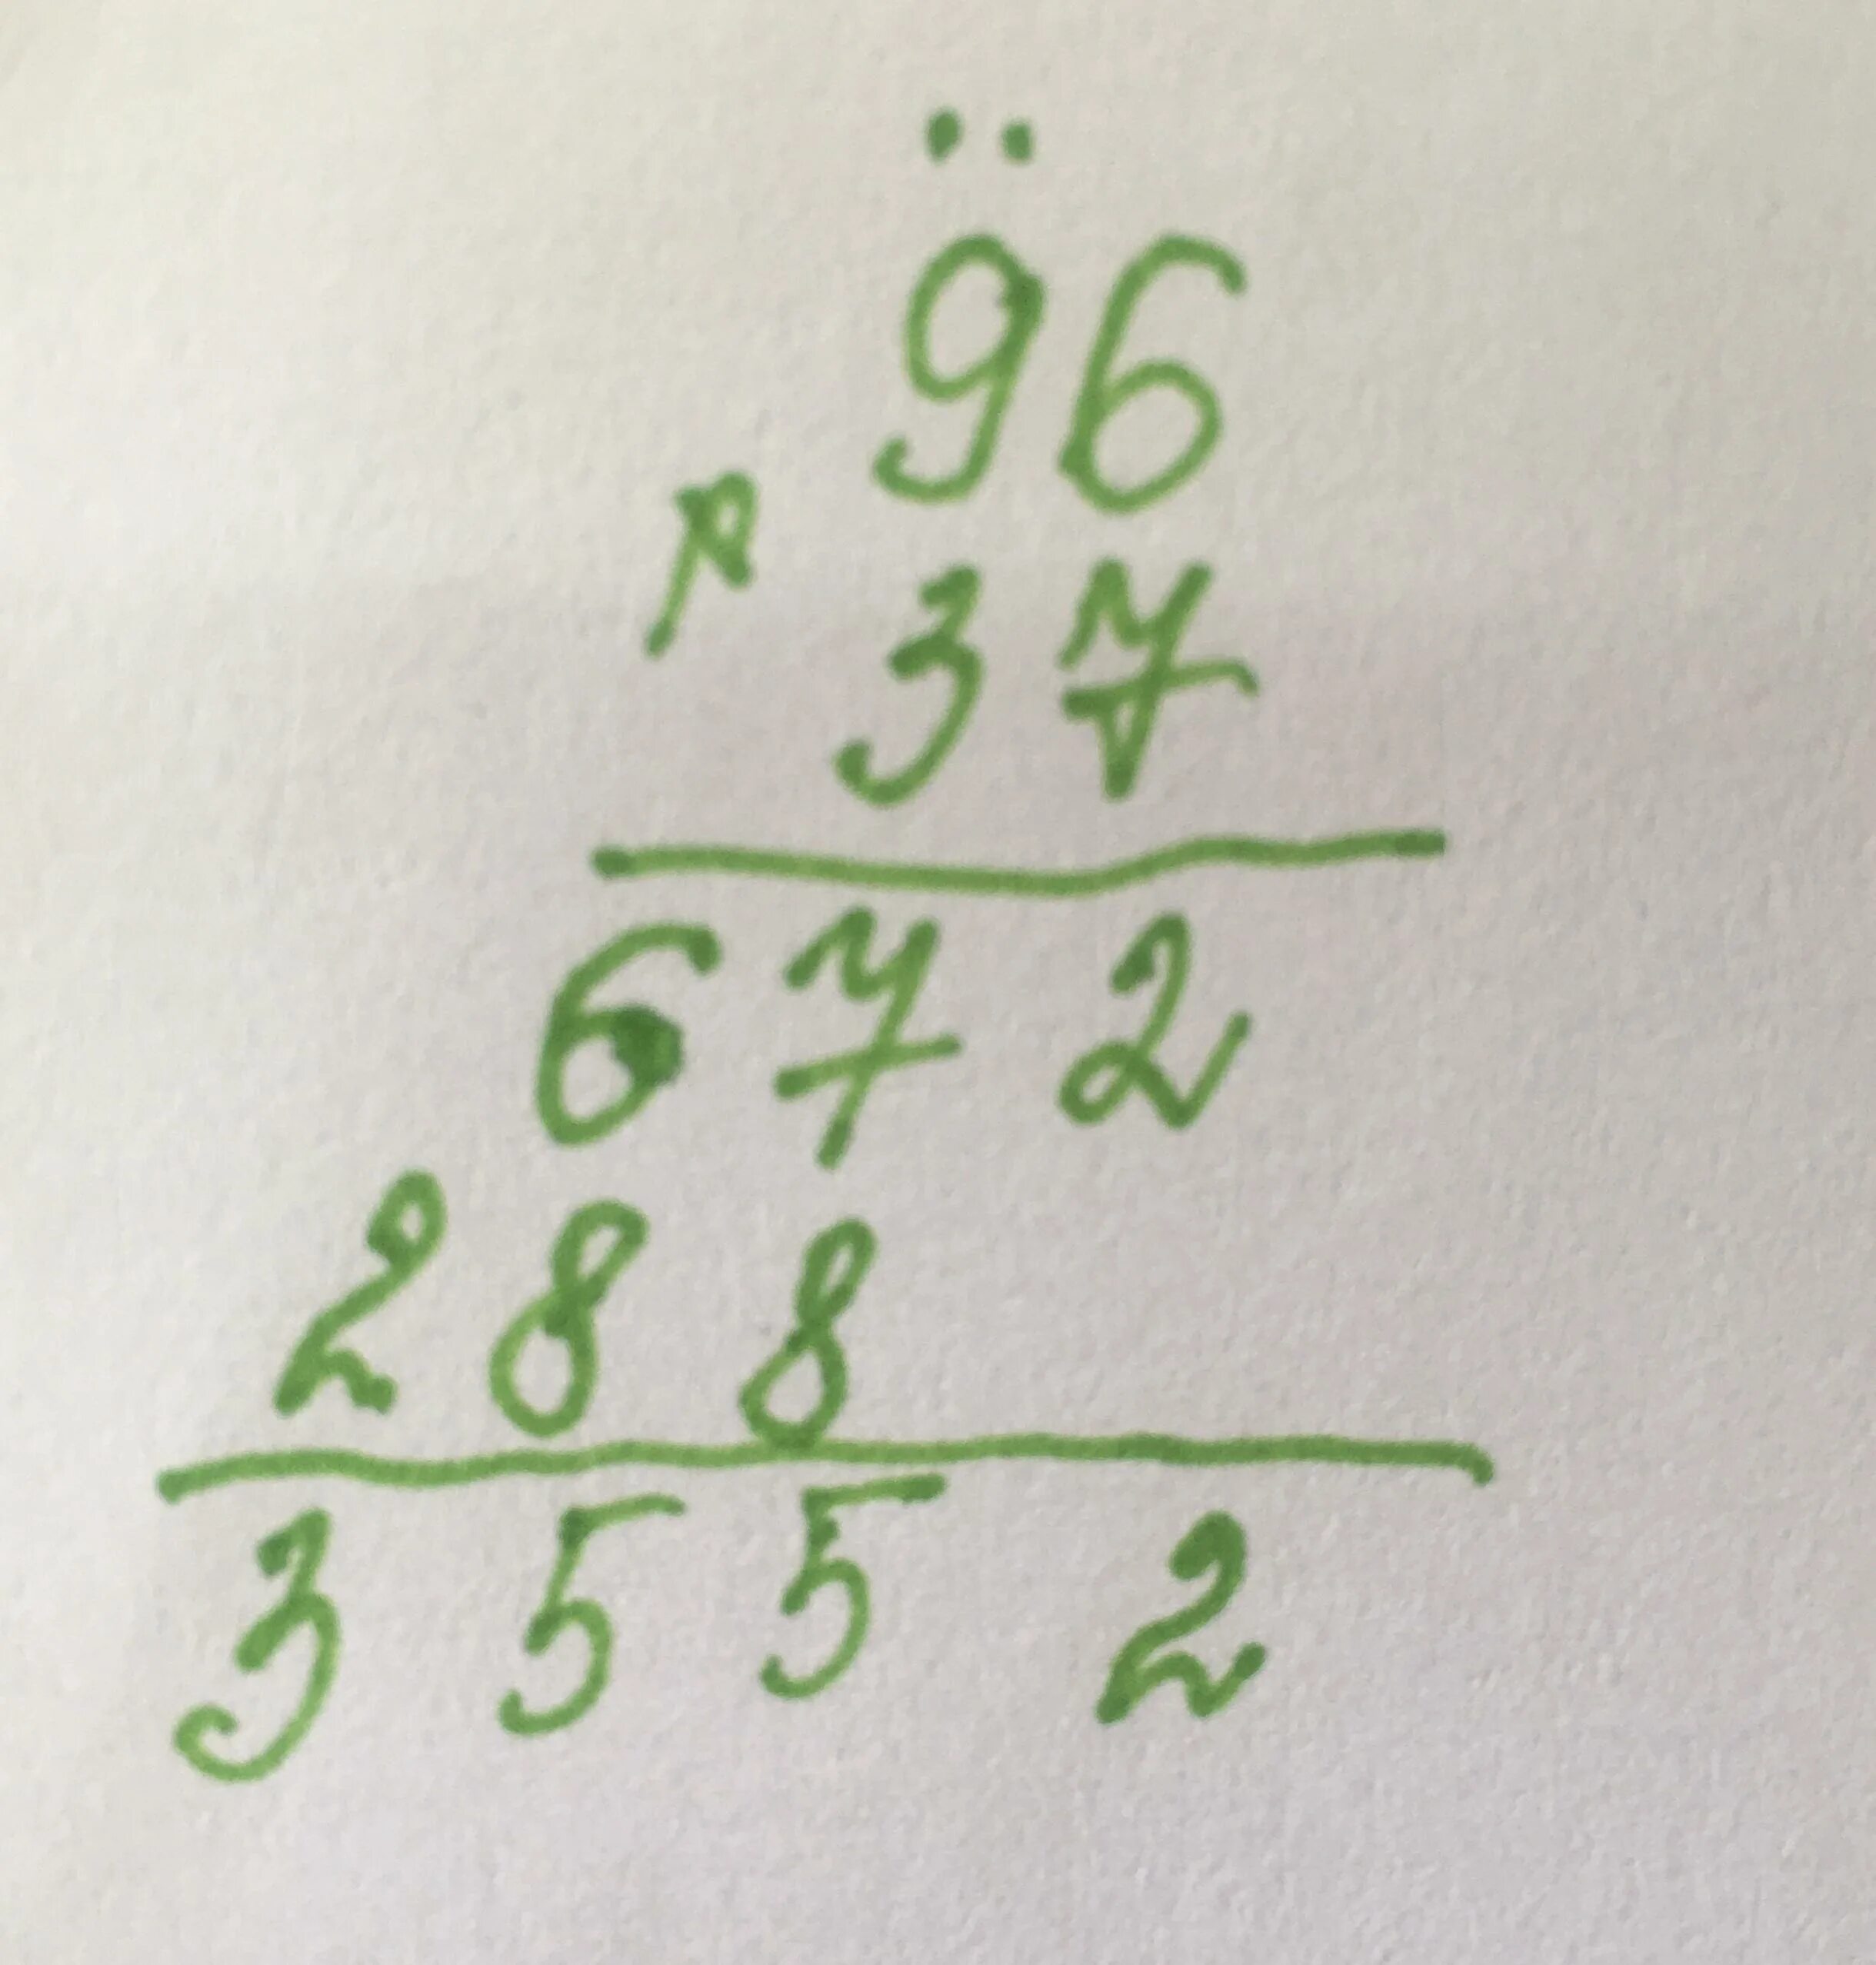 96
37
672
288
3552